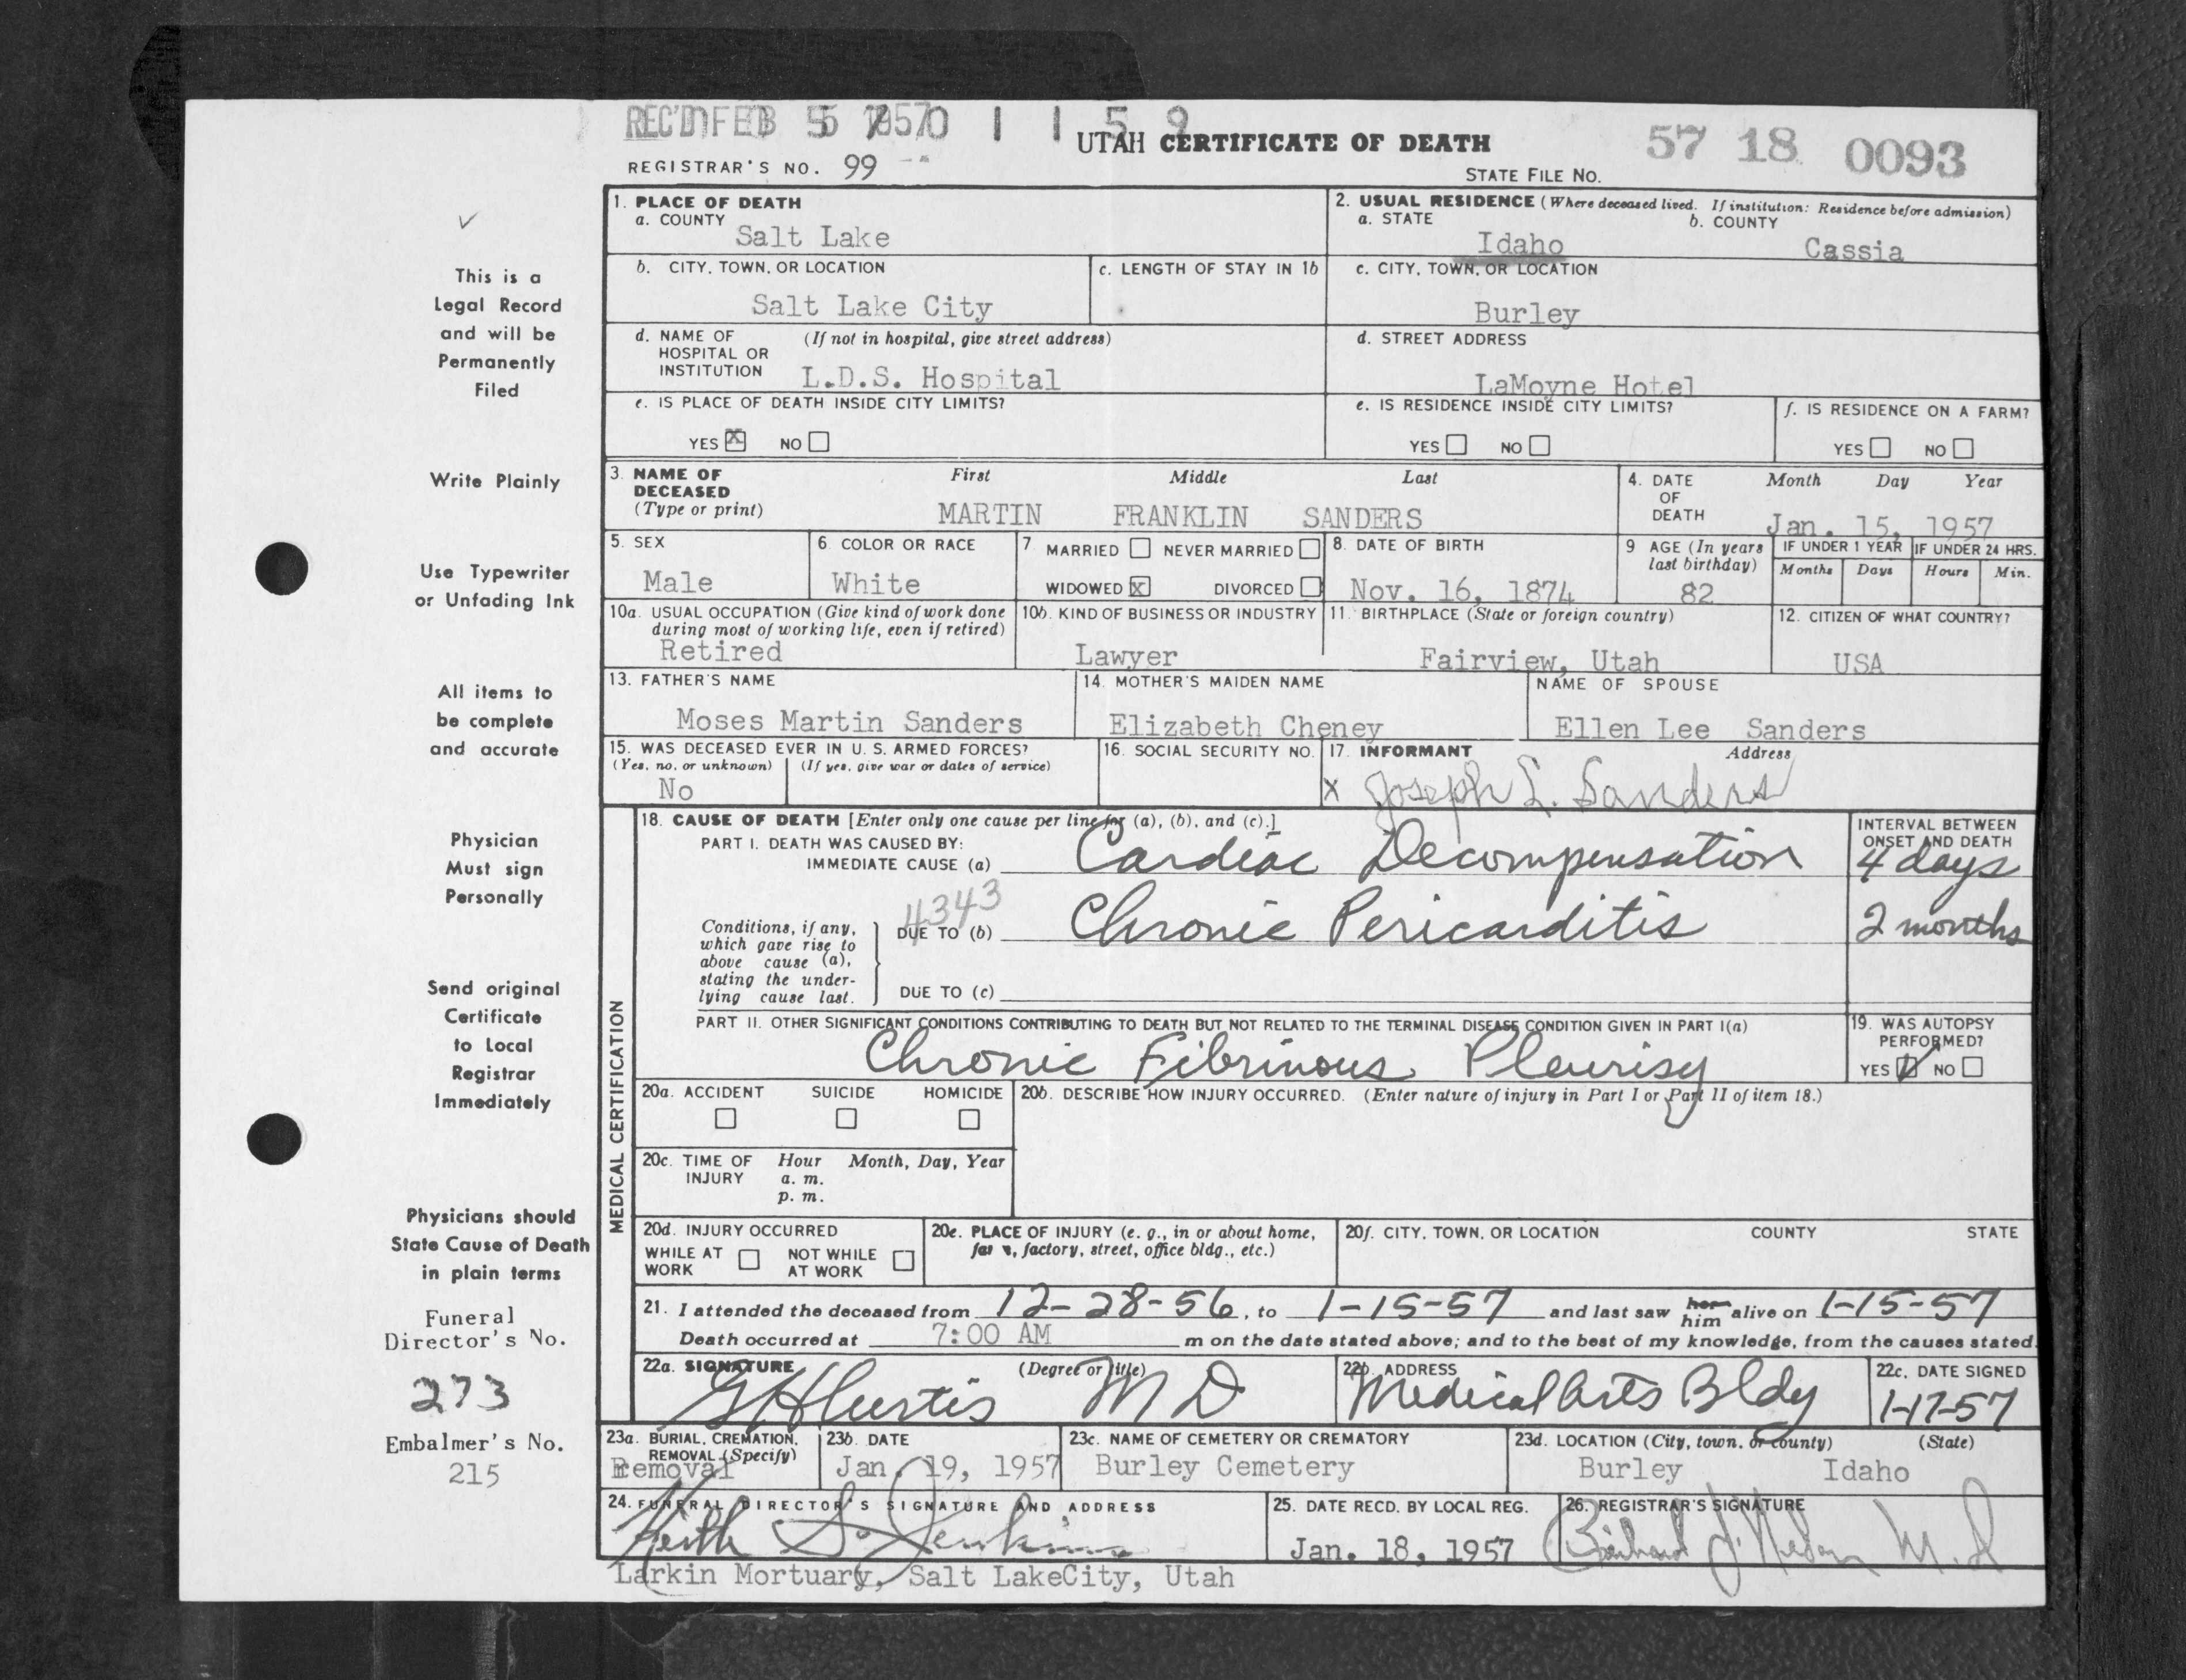 REC'D FEB 5 1957 0 1 1 5 9
UTAH CERTIFICATE OF DEATH
57 18 0093
REGISTRAR'S NO. 99
STATE FILE NO.
This is a
Legal Record
and will be
Permanently
Filed
Write Plainly
Use Typewriter
or Unfading Ink
All items to
be complete
and accurate
Physician
Must sign
Personally
Send original
Certificate
to Local
Registrar
Immediately
Physicians should
State Cause of Death
in plain terms
Funeral
Director's No.
273
Embalmer's No.
215
1. PLACE OF DEATH
a. COUNTY
Salt Lake
2. USUAL RESIDENCE (Where deceased lived. If institution: Residence before admission)
a. STATE b. COUNTY
Idaho Cassia
b. CITY, TOWN, OR LOCATION
Salt Lake City
c. LENGTH OF STAY IN 1b
c. CITY, TOWN, OR LOCATION
Burley
d. NAME OF (If not in hospital, give street address)
HOSPITAL OR
INSTITUTION L.D.S. Hospital
d. STREET ADDRESS
LaMoyne Hotel
e. IS PLACE OF DEATH INSIDE CITY LIMITS?
YES X NO
e. IS RESIDENCE INSIDE CITY LIMITS?
YES NO
f. IS RESIDENCE ON A FARM?
YES NO
3. NAME OF First Middle Last
DECEASED
(Type or print) MARTIN FRANKLIN SANDERS
4. DATE Month Day Year
OF
DEATH Jan. 15, 1957
5. SEX
Male
6. COLOR OR RACE
White
7 MARRIED NEVER MARRIED
WIDOWED X DIVORCED
8. DATE OF BIRTH
Nov. 16, 1874
9 AGE (In years
last birthday)
82
IF UNDER 1 YEAR IF UNDER 24 HRS.
Months Days Hours Min.
10a. USUAL OCCUPATION (Give kind of work done
during most of working life, even if retired)
Retired
10b. KIND OF BUSINESS OR INDUSTRY
Lawyer
11. BIRTHPLACE (State or foreign country)
Fairview, Utah
12. CITIZEN OF WHAT COUNTRY?
USA
13. FATHER'S NAME
Moses Martin Sanders
14. MOTHER'S MAIDEN NAME
Elizabeth Cheney
NAME OF SPOUSE
Ellen Lee Sanders
15. WAS DECEASED EVER IN U. S. ARMED FORCES?
(Yes, no, or unknown) (If yes, give war or dates of service)
No
16. SOCIAL SECURITY NO.
17. INFORMANT Address
X Joseph L. Sanders
MEDICAL CERTIFICATION
18. CAUSE OF DEATH [Enter only one cause per line for (a), (b), and (c).]
PART I. DEATH WAS CAUSED BY:
IMMEDIATE CAUSE (a) Cardiac Decompensation
INTERVAL BETWEEN
ONSET AND DEATH
4 days
4343
Conditions, if any,
which gave rise to
above cause (a),
stating the under-
lying cause last.
DUE TO (b) Chronic Pericarditis
2 months
DUE TO (c)
PART II. OTHER SIGNIFICANT CONDITIONS CONTRIBUTING TO DEATH BUT NOT RELATED TO THE TERMINAL DISEASE CONDITION GIVEN IN PART I(a)
Chronic Fibrinous Pleurisy
19. WAS AUTOPSY
PERFORMED?
YES ✓ NO
20a. ACCIDENT SUICIDE HOMICIDE
20b. DESCRIBE HOW INJURY OCCURRED. (Enter nature of injury in Part I or Part II of item 18.)
20c. TIME OF Hour Month, Day, Year
INJURY a. m.
p. m.
20d. INJURY OCCURRED
WHILE AT NOT WHILE
WORK AT WORK
20e. PLACE OF INJURY (e. g., in or about home,
factory, street, office bldg., etc.)
20f. CITY, TOWN, OR LOCATION COUNTY STATE
21. I attended the deceased from 12-28-56, to 1-15-57 and last saw her him alive on 1-15-57
Death occurred at 7:00 AM m on the date stated above; and to the best of my knowledge, from the causes stated.
22a. SIGNATURE (Degree or title)
G H Curtis M D
22b. ADDRESS
Medical Arts Bldg
22c. DATE SIGNED
1-17-57
23a. BURIAL, CREMATION,
REMOVAL (Specify)
Removal
23b. DATE
Jan. 19, 1957
23c. NAME OF CEMETERY OR CREMATORY
Burley Cemetery
23d. LOCATION (City, town, or county) (State)
Burley Idaho
24. FUNERAL DIRECTOR'S SIGNATURE AND ADDRESS
Keith S. Jenkins
Larkin Mortuary, Salt LakeCity, Utah
25. DATE RECD. BY LOCAL REG.
Jan. 18, 1957
26. REGISTRAR'S SIGNATURE
M.D